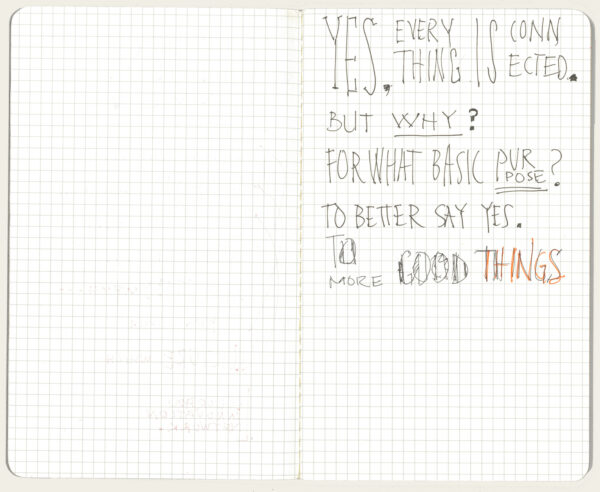 YES, EVERYTHING IS CONNECTED.
BUT WHY?
FOR WHAT BASIC PURPOSE?
TO BETTER SAY YES.
TO
MORE GOOD THINGS